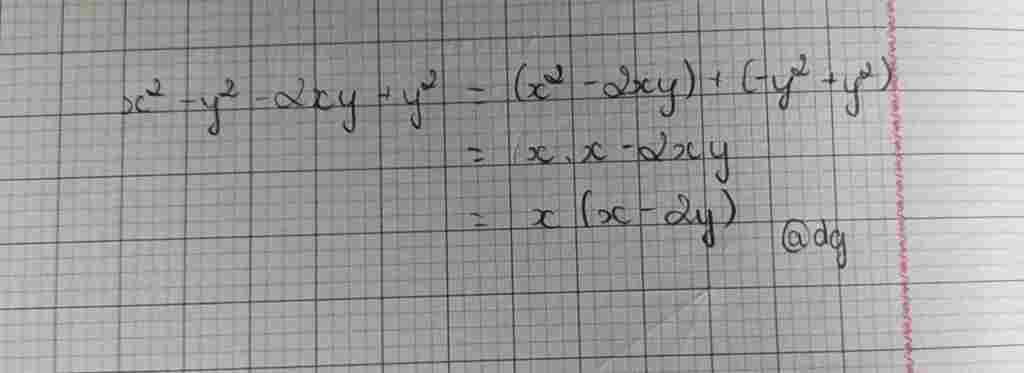 x² - y² - 2xy + y² = (x² - 2xy) + (-y² + y²)
= x . x - 2xy
= x (x - 2y)
@dg